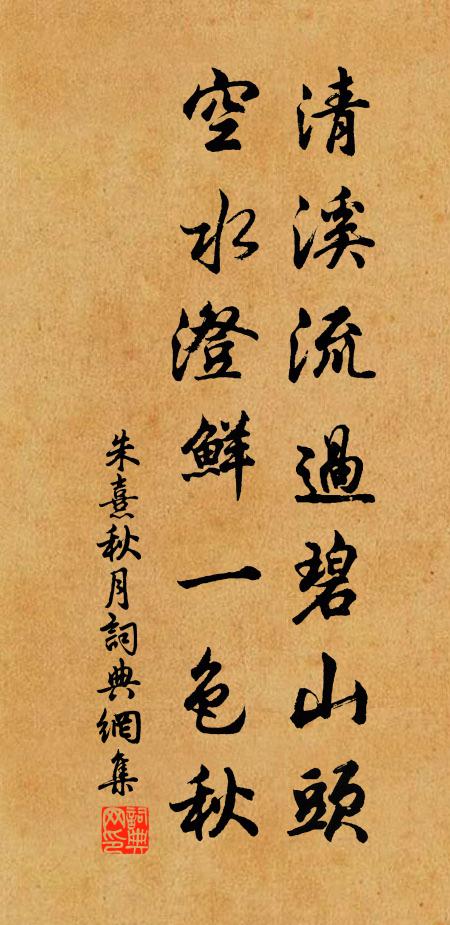 清溪流過碧山頭
空水澄鮮一色秋
朱熹秋月詞典網集
詞典网印